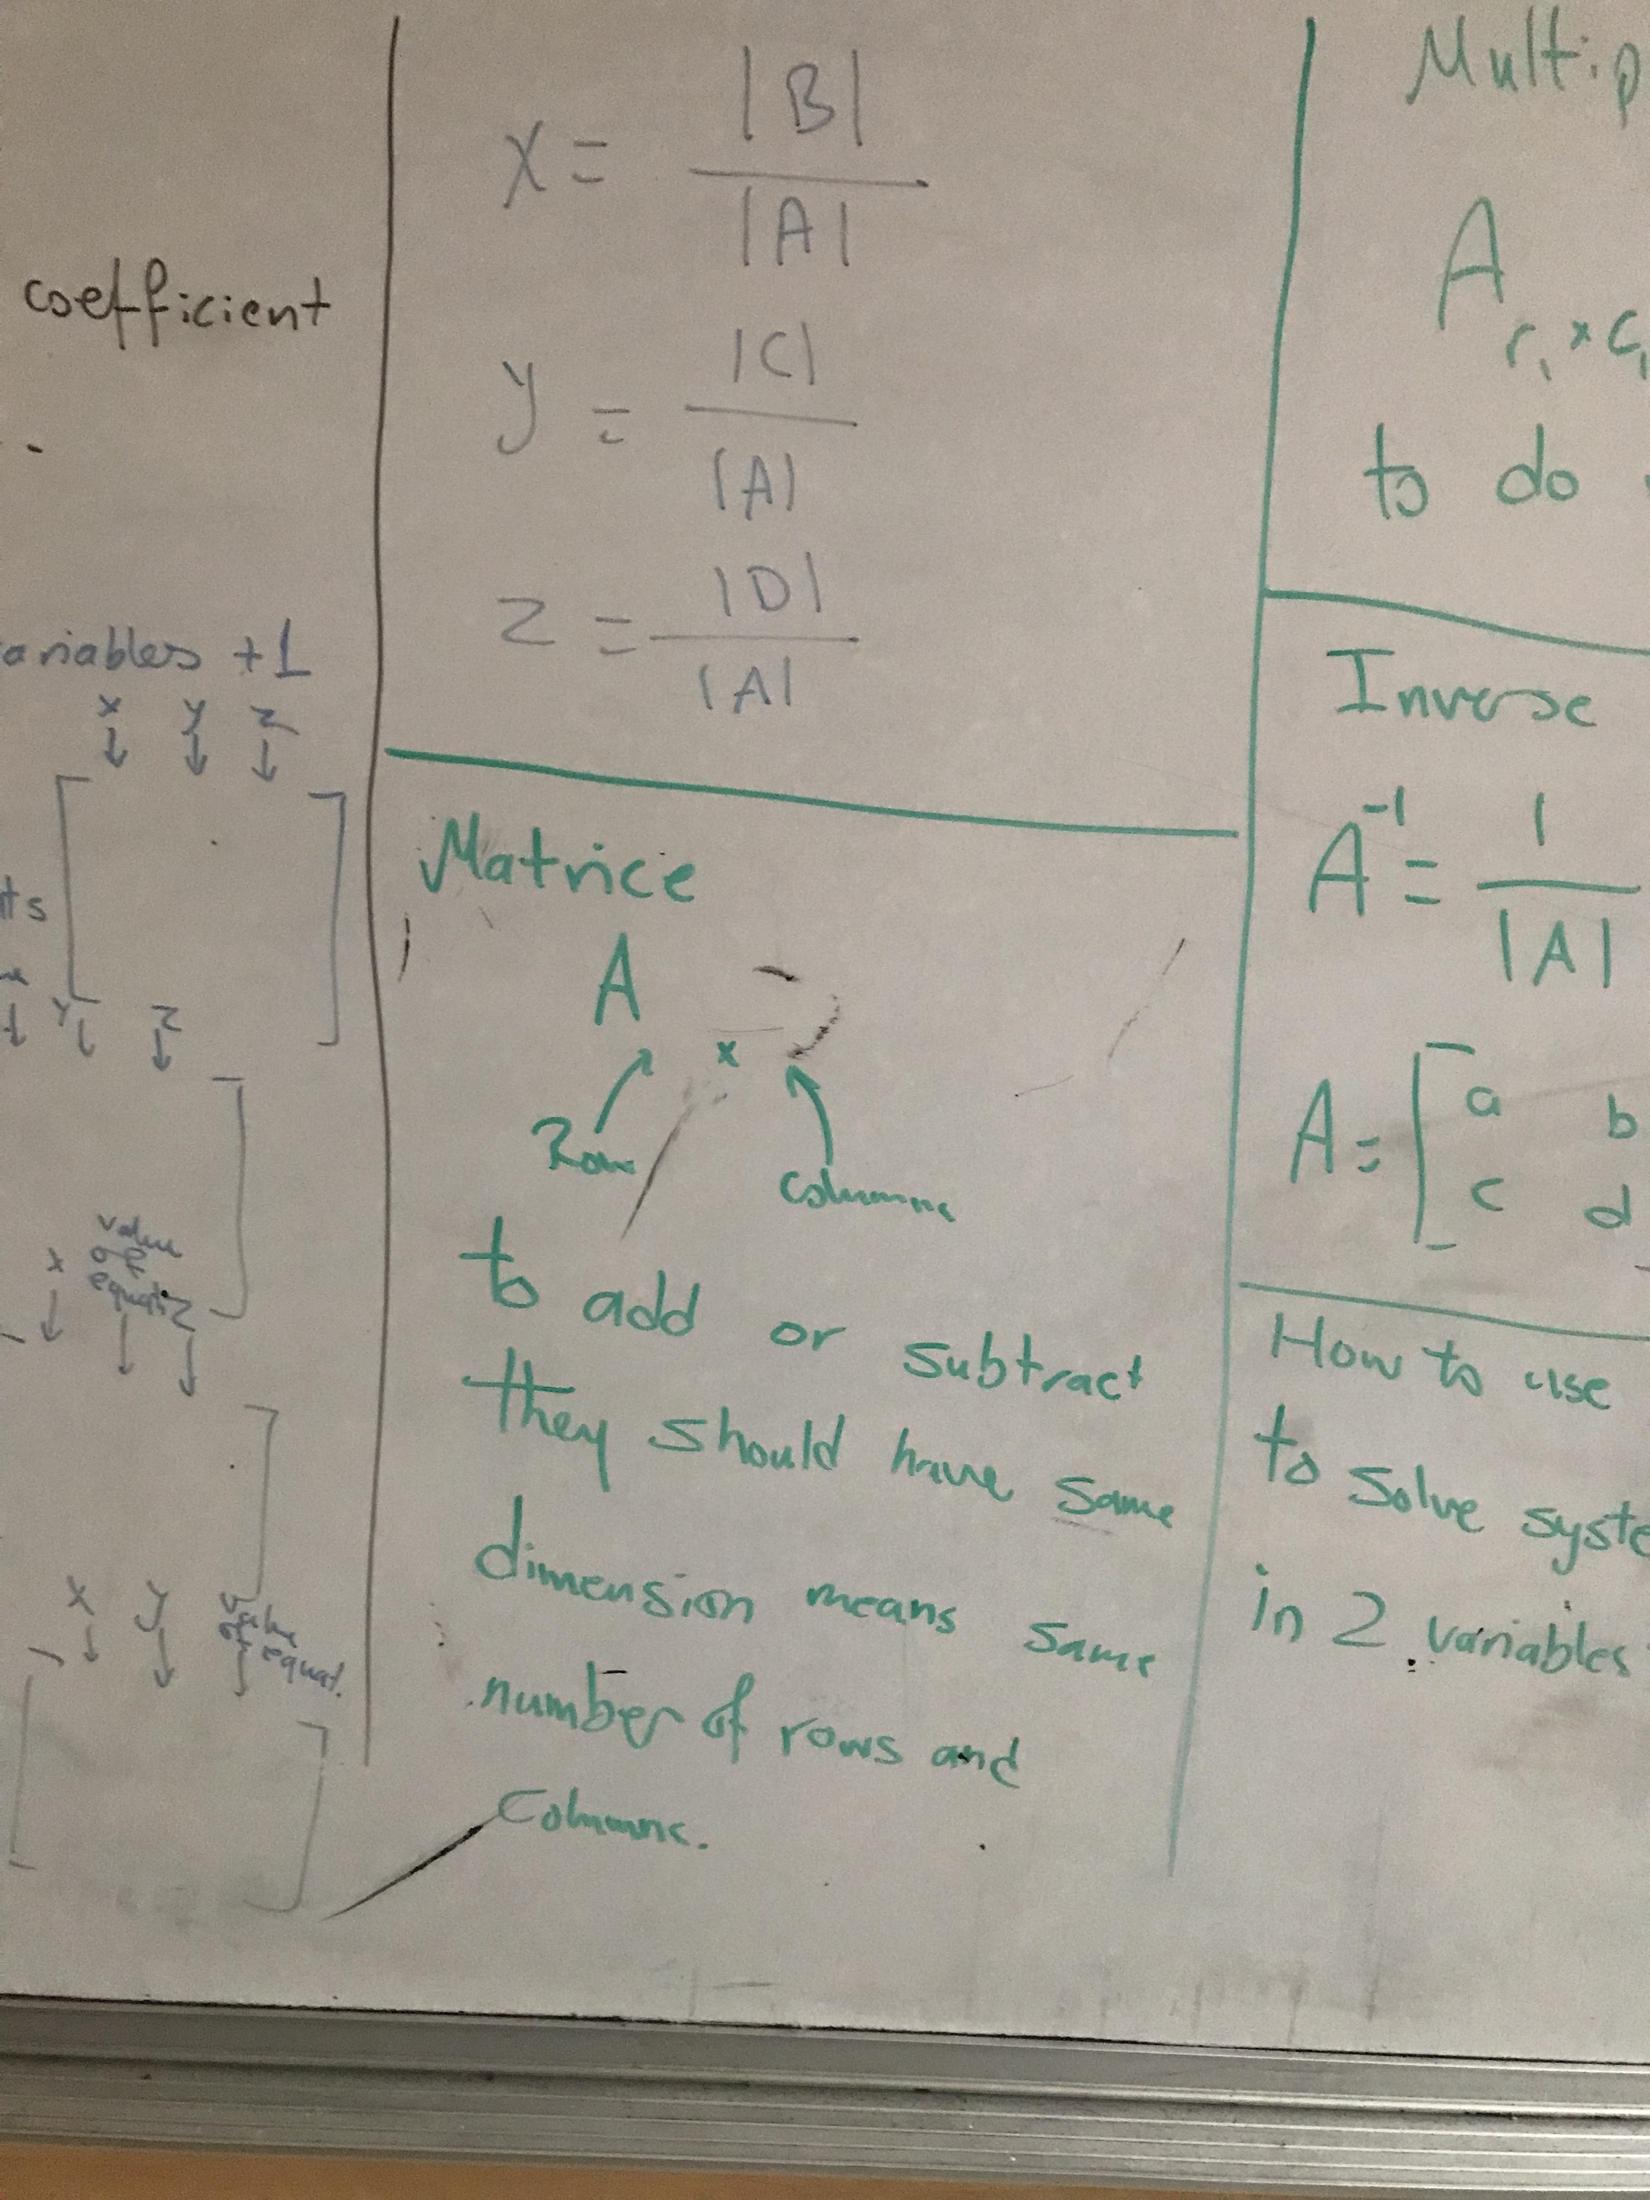 coefficient
ariables +1
x y z
ts
y z
x value
of
equat. z
x y value
of equat.
x = |B|
|A|
y = |C|
|A|
z = |D|
|A|
Matrice
A
x
Row
Columns
to add or subtract
they should have same
dimension means same
number of rows and
Columns.
Multip
A
r₁ x c₁
to do
Inverse
A⁻¹ = 1
|A|
A = [ a b
c d
How to use
to solve syste
in 2 variables